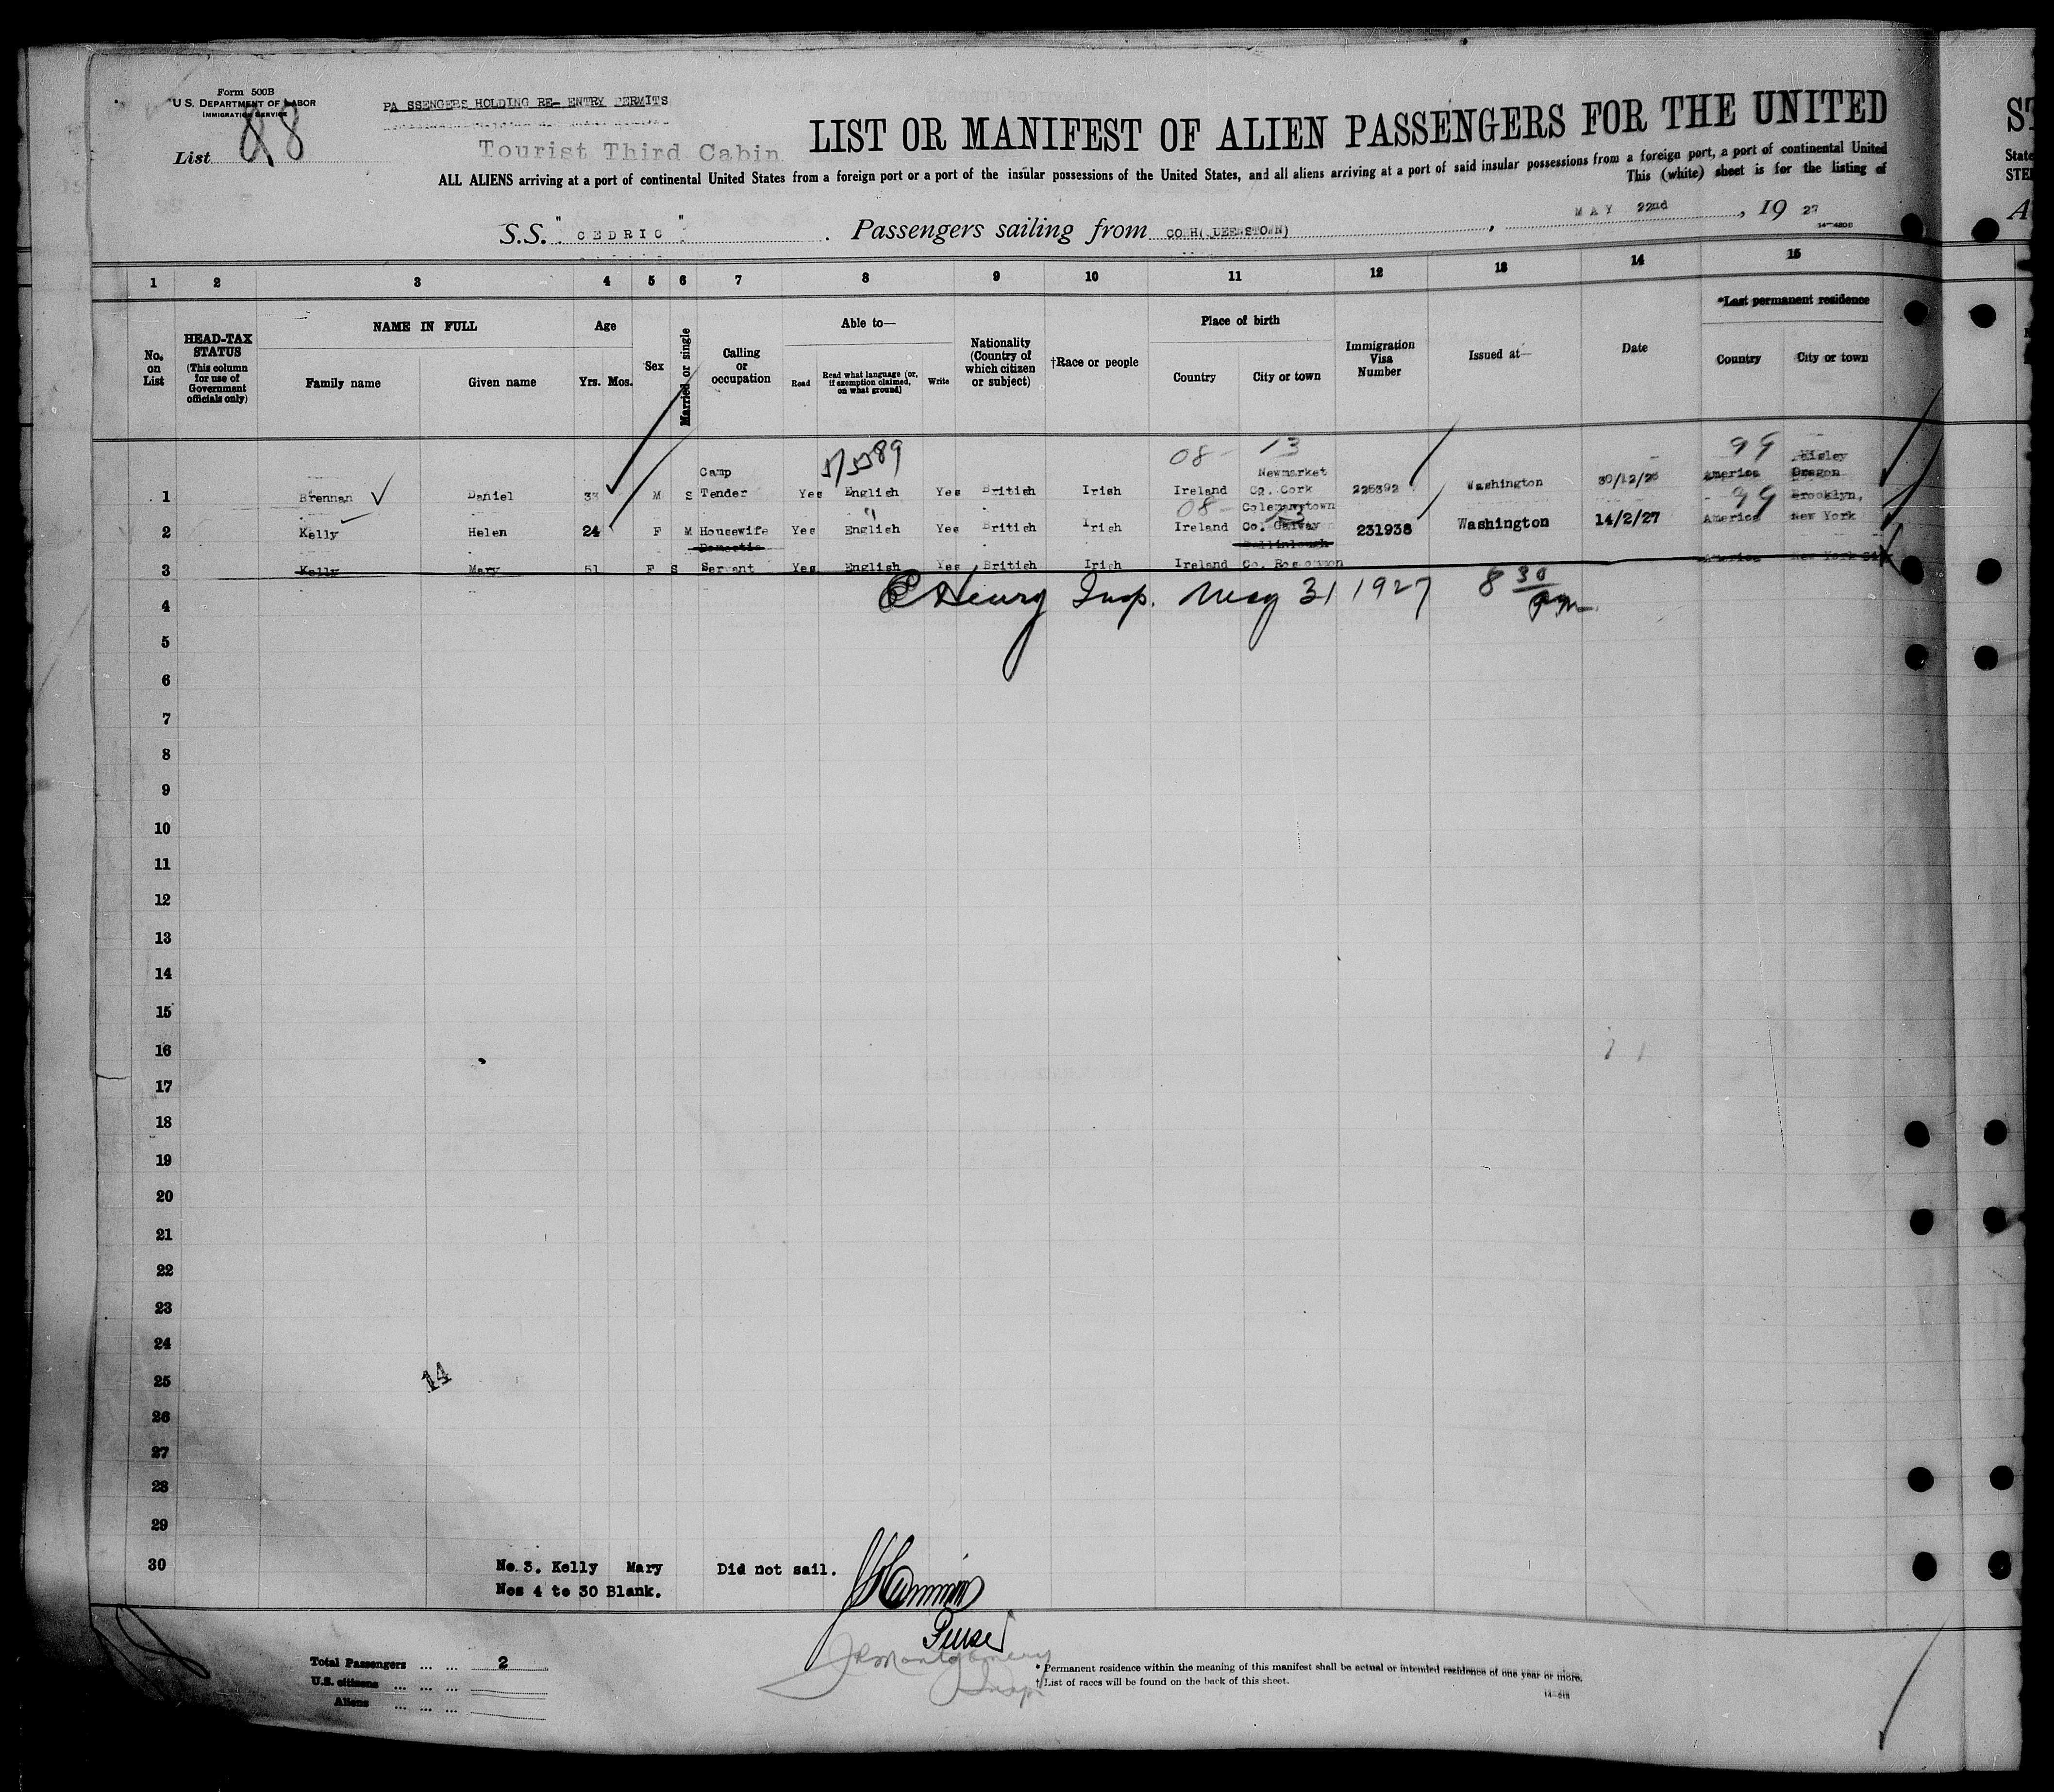 Form 500B
U. S. DEPARTMENT OF LABOR
IMMIGRATION SERVICE
List 88
PA SSENGERS HOLDING RE- ENTRY PERMITS
Tourist Third Cabin
LIST OR MANIFEST OF ALIEN PASSENGERS FOR THE UNITED
ALL ALIENS arriving at a port of continental United States from a foreign port or a port of the insular possessions of the United States, and all aliens arriving at a port of said insular possessions from a foreign port, a port of continental United
This (white) sheet is for the listing of
S.S. " CEDRIC " . Passengers sailing from COBH(QUEENSTOWN) , MAY 22nd , 19 27
1 2 3 4 5 6 7 8 9 10 11 12 13 14 15
No. on List
HEAD-TAX STATUS (This column for use of Government officials only)
NAME IN FULL
Family name Given name
Age
Yrs. Mos.
Sex
Married or single
Calling or occupation
Able to—
Read
Read what language (or, if exemption claimed, on what ground)
Write
Nationality (Country of which citizen or subject)
†Race or people
Place of birth
Country City or town
Immigration Visa Number
Issued at—
Date
*Last permanent residence
Country City or town
08 - 13 99
Camp Newmarket
1 Brennan Daniel 33 M S Tender Yes English Yes British Irish Ireland Co. Cork 225392 Washington 30/12/26 America Oregon
08 - 13 99
Colemanytown Brooklyn,
2 Kelly Helen 24 F M Housewife Yes English Yes British Irish Ireland Co. Galway 231938 Washington 14/2/27 America New York
Domestic Ballinlough
3 Kelly Mary 51 F S Servant Yes English Yes British Irish Ireland Co. Roscommon America New York City
C Henry Insp. May 31 1927 8 30 pm
4
5
6
7
8
9
10
11
12
13
14
15
16
17
18
19
20
21
22
23
24
25
14
26
27
28
29
30
No.3. Kelly Mary Did not sail.
Nos 4 to 30 Blank.
Purser
JR Montgomery
Insp
Total Passengers ... ... 2
U.S. citizens ... ... ...
Aliens ... ... ...
* Permanent residence within the meaning of this manifest shall be actual or intended residence of one year or more.
† List of races will be found on the back of this sheet.